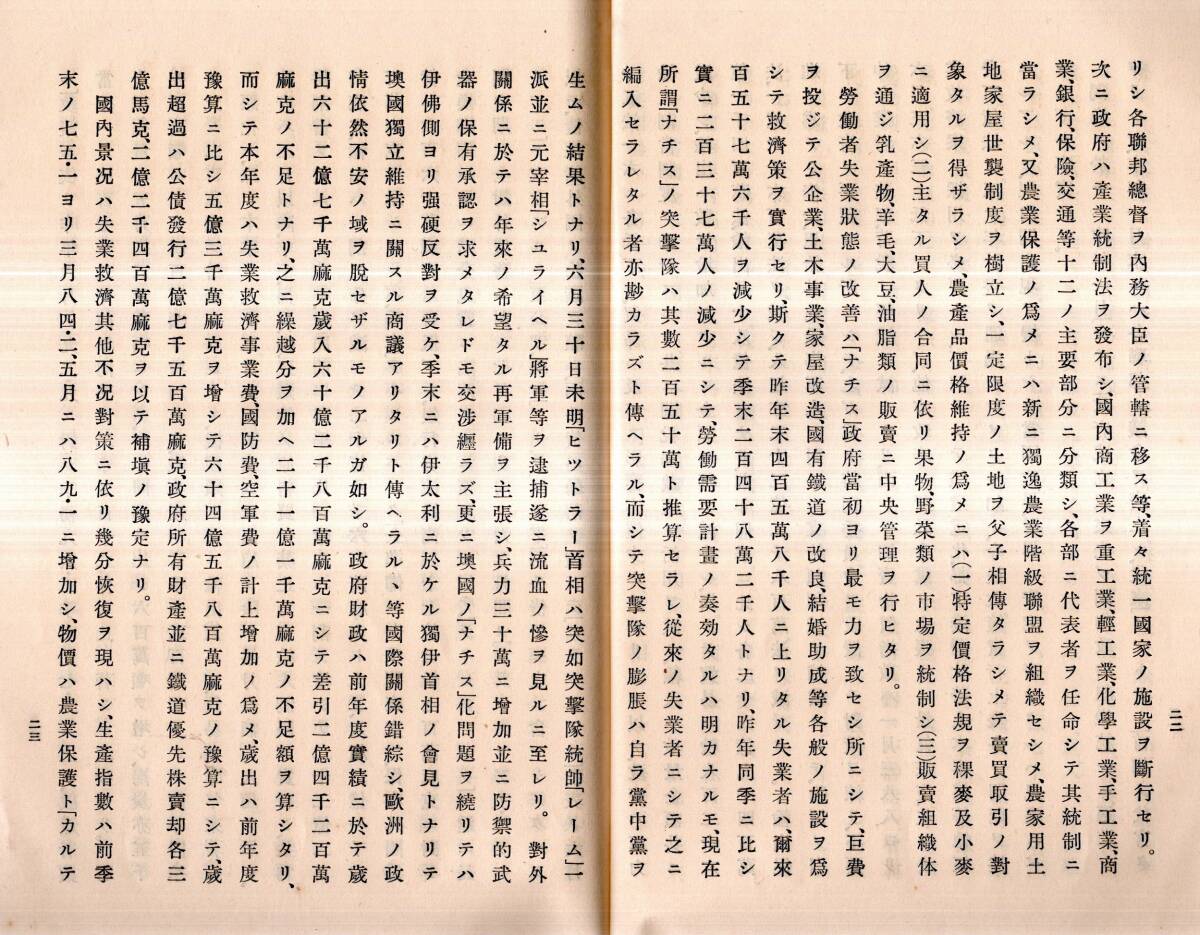 リシ各聯邦總督ヲ內務大臣ノ管轄ニ移ス等、着々統一國家ノ施設ヲ斷行セリ。
次ニ政府ハ產業統制法ヲ發布シ、國內商工業ヲ重工業、輕工業、化學工業、手工業、商
業、銀行、保險、交通等十二ノ主要部分ニ分類シ、各部ニ代表者ヲ任命シテ其統制ニ
當ラシメ、又農業保護ノ爲メニハ新ニ獨逸農業階級聯盟ヲ組織セシメ、農家用土
地家屋世襲制度ヲ樹立シ、一定限度ノ土地ヲ父子相傳タラシメテ賣買取引ノ對
象タルヲ得ザラシメ、農產品價格維持ノ爲メニハ(一)特定價格法規ヲ稞麥及小麥
ニ適用シ(二)主タル買人ノ合同ニ依リ果物、野菜類ノ市場ヲ統制シ(三)販賣組織体
ヲ通ジ乳產物、羊毛、大豆、油脂類ノ販賣ニ中央管理ヲ行ヒタリ。
勞働者失業狀態ノ改善ハ「ナチス」政府當初ヨリ最モ力ヲ致セシ所ニシテ、巨費
ヲ投ジテ公企業、土木事業、家屋改造、國有鐵道ノ改良、結婚助成等各般ノ施設ヲ爲
シテ救濟策ヲ實行セリ、斯クテ昨年末四百五萬八千人ニ上リタル失業者ハ、爾來
百五十七萬六千人ヲ減少シテ季末二百四十八萬二千人トナリ、昨年同季ニ比シ
實ニ二百三十七萬人ノ減少ニシテ、勞働需要計畫ノ奏効タルハ明カナルモ、現在
所謂「ナチス」ノ突擊隊ハ其數二百五十萬ト推算セラレ、從來ノ失業者ニシテ之ニ
編入セラレタル者亦尠カラズト傳ヘラル、而シテ突擊隊ノ膨脹ハ自ラ黨中黨ヲ
二二
生ムノ結果トナリ、六月三十日未明「ヒツトラー」首相ハ突如突擊隊統帥「レーム」一
派並ニ元宰相「シユライヘル」將軍等ヲ逮捕遂ニ流血ノ慘ヲ見ルニ至レリ。對外
關係ニ於テハ年來ノ希望タル再軍備ヲ主張シ、兵力三十萬ニ增加並ニ防禦的武
器ノ保有承認ヲ求メタレドモ交涉纏ラズ、更ニ墺國ノ「ナチス」化問題ヲ繞リテハ
伊佛側ヨリ强硬反對ヲ受ケ、季末ニハ伊太利ニ於ケル獨伊首相ノ會見トナリテ
墺國獨立維持ニ關スル商議アリタリト傳ヘラル、等國際關係錯綜シ、歐洲ノ政
情依然不安ノ域ヲ脫セザルモノアルガ如シ。政府財政ハ前年度實績ニ於テ歲
出六十二億七千萬麻克歲入六十億二千八百萬麻克ニシテ差引二億四千二百萬
麻克ノ不足トナリ、之ニ繰越分ヲ加ヘ二十一億一千萬麻克ノ不足額ヲ算シタリ、
而シテ本年度ハ失業救濟事業費、國防費、空軍費ノ計上增加ノ爲メ、歲出ハ前年度
豫算ニ比シ五億三千萬麻克ヲ增シテ六十四億五千八百萬麻克ノ豫算ニシテ、歲
出超過ハ公債發行二億七千五百萬麻克、政府所有財產並ニ鐵道優先株賣却各三
億馬克、二億二千四百萬麻克ヲ以テ補塡ノ豫定ナリ。
國內景况ハ失業救濟其他不況對策ニ依リ幾分恢復ヲ現ハシ、生產指數ハ前季
末ノ七五・一ヨリ三月八四・二、五月ニハ八九・一ニ增加シ、物價ハ農業保護ト「カルテ
二三